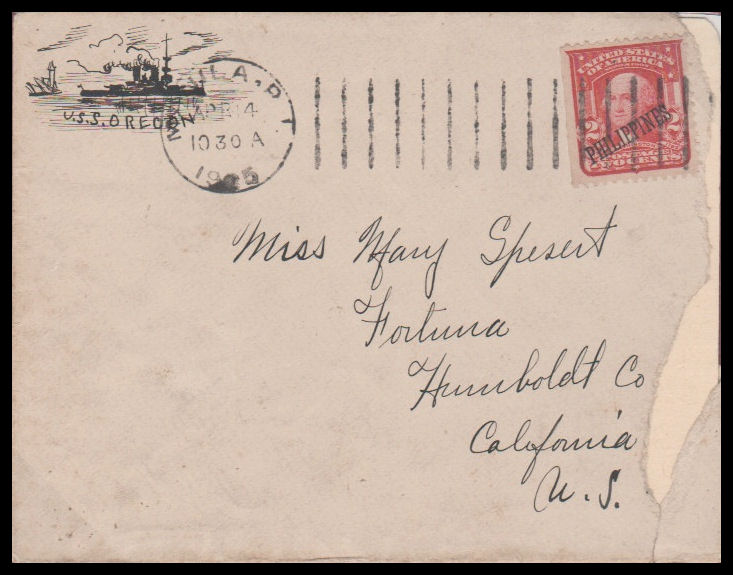 U.S.S. OREGON
MANILA, P I
APR 14
10 30 A
1905
UNITED STATES
OF AMERICA
2 2
PHILIPPINES
POSTAGE
TWO CENTS
Miss Mary Spesert
Fortuna
Humboldt Co
California
U. S.